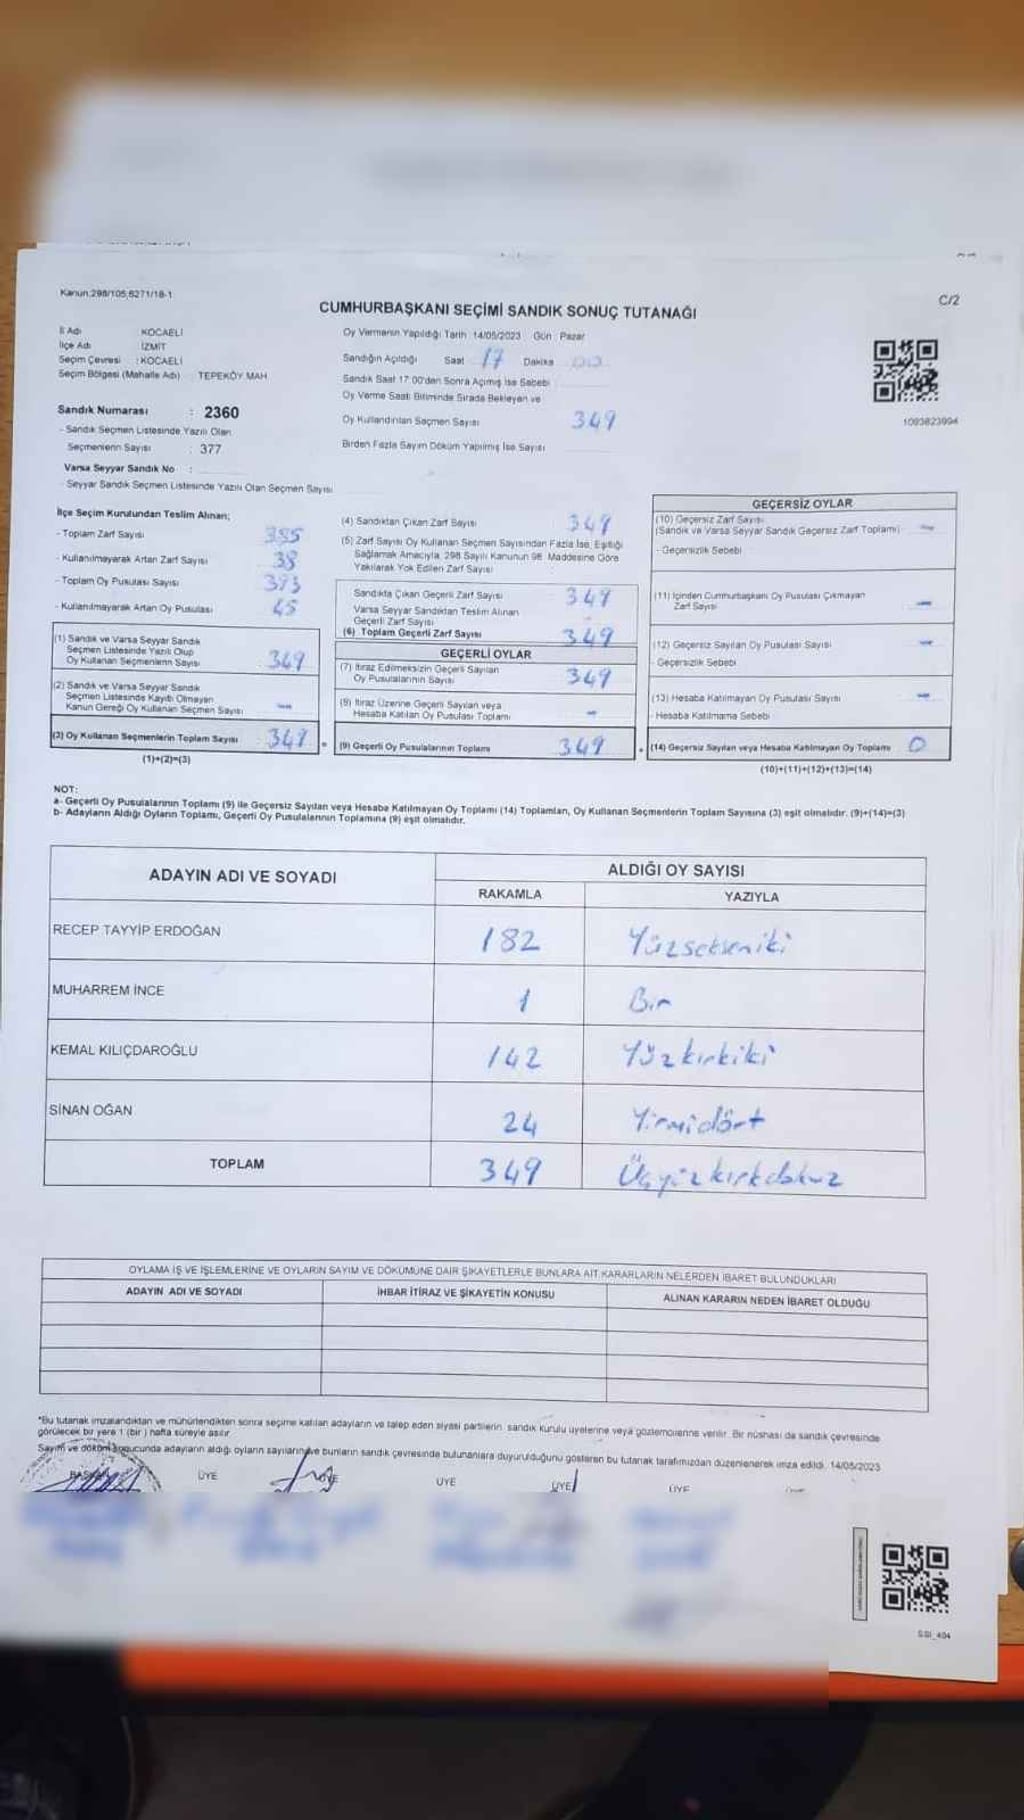 Kanun:298/105,6271/18-1
C/2
CUMHURBAŞKANI SEÇİMİ SANDIK SONUÇ TUTANAĞI
İl Adı KOCAELİ
İlçe Adı İZMİT
Seçim Çevresi : KOCAELİ
Seçim Bölgesi (Mahalle Adı) : TEPEKÖY MAH
Sandık Numarası : 2360
- Sandık Seçmen Listesinde Yazılı Olan
Seçmenlerin Sayısı : 377
Varsa Seyyar Sandık No :
- Seyyar Sandık Seçmen Listesinde Yazılı Olan Seçmen Sayısı
Oy Vermenin Yapıldığı Tarih :14/05/2023 Gün : Pazar
Sandığın Açıldığı Saat 17 Dakika 00
Sandık Saat 17:00'den Sonra Açılmış İse Sebebi
Oy Verme Saati Bitiminde Sırada Bekleyen ve
Oy Kullandırılan Seçmen Sayısı 349
Birden Fazla Sayım Döküm Yapılmış İse Sayısı
1093823994
İlçe Seçim Kurulundan Teslim Alınan;
- Toplam Zarf Sayısı
- Kullanılmayarak Artan Zarf Sayısı 38
- Toplam Oy Pusulası Sayısı 393
- Kullanılmayarak Artan Oy Pusulası 45
(1) Sandık ve Varsa Seyyar Sandık
Seçmen Listesinde Yazılı Olup
Oy Kullanan Seçmenlerin Sayısı 349
(2) Sandık ve Varsa Seyyar Sandık
Seçmen Listesinde Kayıtlı Olmayan
Kanun Gereği Oy Kullanan Seçmen Sayısı -
(3) Oy Kullanan Seçmenlerin Toplam Sayısı 349
(1)+(2)=(3)
(4) Sandıktan Çıkan Zarf Sayısı 349
(5) Zarf Sayısı Oy Kullanan Seçmen Sayısından Fazla İse, Eşitliği
Sağlamak Amacıyla, 298 Sayılı Kanunun 98. Maddesine Göre
Yakılarak Yok Edilen Zarf Sayısı
Sandıkta Çıkan Geçerli Zarf Sayısı 349
Varsa Seyyar Sandıktan Teslim Alınan
Geçerli Zarf Sayısı
(6) Toplam Geçerli Zarf Sayısı 349
GEÇERLİ OYLAR
(7) İtiraz Edilmeksizin Geçerli Sayılan
Oy Pusulalarının Sayısı 349
(8) İtiraz Üzerine Geçerli Sayılan veya
Hesaba Katılan Oy Pusulası Toplamı -
(9) Geçerli Oy Pusulalarının Toplamı 349
GEÇERSİZ OYLAR
(10) Geçersiz Zarf Sayısı
(Sandık ve Varsa Seyyar Sandık Geçersiz Zarf Toplamı) -
- Geçersizlik Sebebi
(11) İçinden Cumhurbaşkanı Oy Pusulası Çıkmayan
Zarf Sayısı -
(12) Geçersiz Sayılan Oy Pusulası Sayısı -
- Geçersizlik Sebebi
(13) Hesaba Katılmayan Oy Pusulası Sayısı -
- Hesaba Katılmama Sebebi
(14) Geçersiz Sayılan veya Hesaba Katılmayan Oy Toplamı 0
(10)+(11)+(12)+(13)=(14)
NOT:
a- Geçerli Oy Pusulalarının Toplamı (9) ile Geçersiz Sayılan veya Hesaba Katılmayan Oy Toplamı (14) Toplamları, Oy Kullanan Seçmenlerin Toplam Sayısına (3) eşit olmalıdır. (9)+(14)=(3)
b- Adayların Aldığı Oyların Toplamı, Geçerli Oy Pusulalarının Toplamına (9) eşit olmalıdır.
ADAYIN ADI VE SOYADI
ALDIĞI OY SAYISI
RAKAMLA YAZIYLA
RECEP TAYYİP ERDOĞAN 182 Yüzsekseniki
MUHARREM İNCE 1 Bir
KEMAL KILIÇDAROĞLU 142 Yüzkırkiki
SİNAN OĞAN 24 Yirmidört
TOPLAM 349 Üçyüzkırkdokuz
OYLAMA İŞ VE İŞLEMLERİNE VE OYLARIN SAYIM VE DÖKÜMÜNE DAİR ŞİKAYETLERLE BUNLARA AİT KARARLARIN NELERDEN İBARET BULUNDUKLARI
ADAYIN ADI VE SOYADI
İHBAR İTİRAZ VE ŞİKAYETİN KONUSU
ALINAN KARARIN NEDEN İBARET OLDUĞU
*Bu tutanak imzalandıktan ve mühürlendikten sonra seçime katılan adayların ve talep eden siyasi partilerin sandık kurulu üyelerine veya gözlemcilerine verilir. Bir nüshası da sandık çevresinde
görülecek bir yere 1 (bir) hafta süreyle asılır.
Sayım ve döküm sonucunda adayların aldığı oyların sayıları ve bunların sandık çevresinde bulunanlara duyurulduğunu gösteren bu tutanak tarafımızdan düzenlenerek imza edildi. 14/05/2023
BAŞKAN ÜYE ÜYE ÜYE ÜYE ÜYE